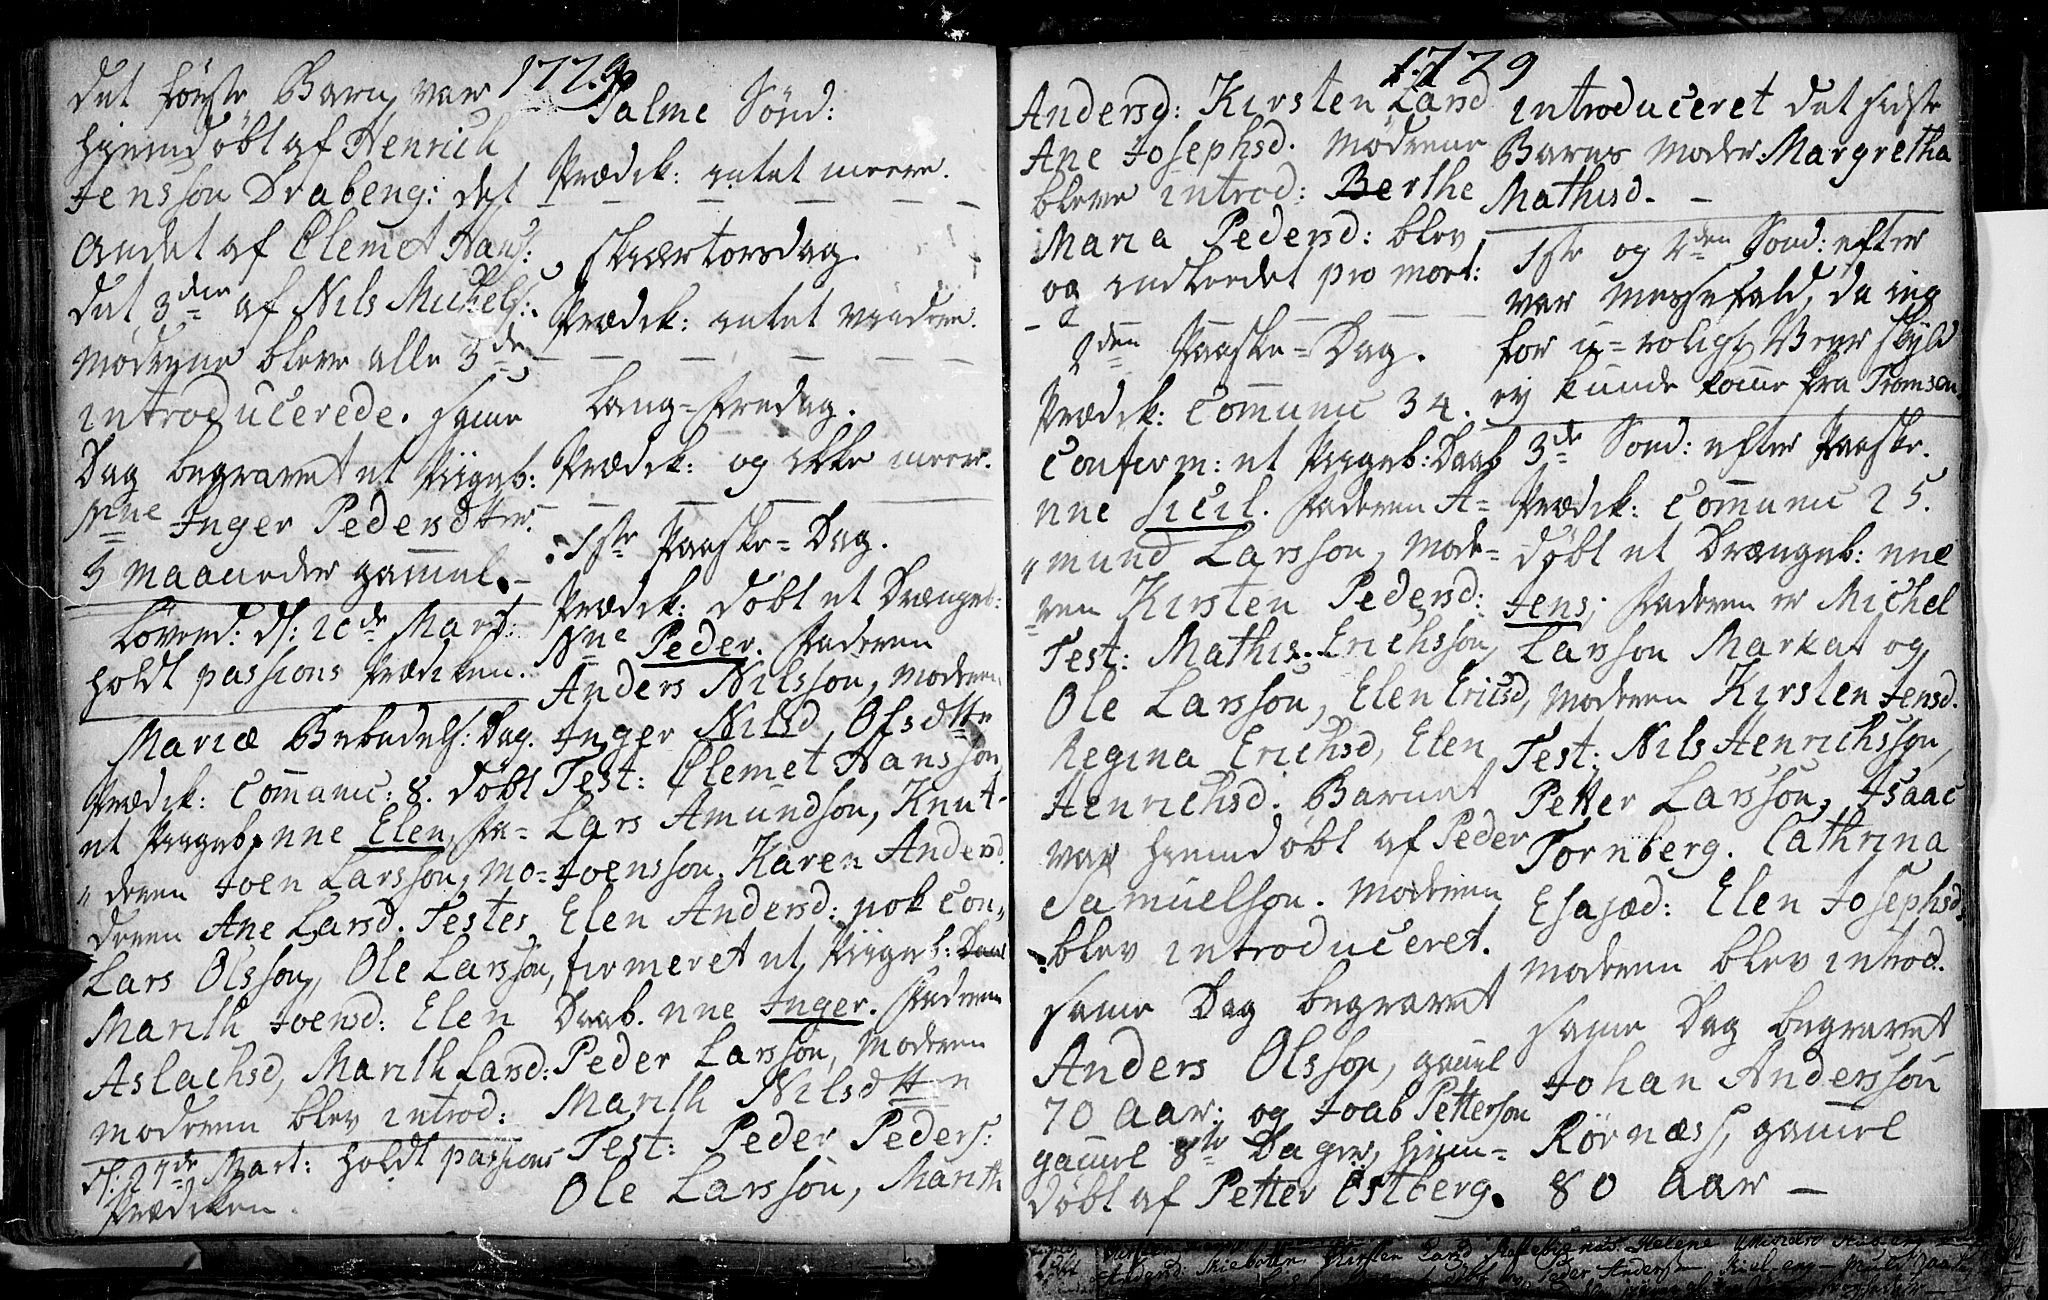 1779
det første Barn var
hiemdøbt af Henrich
Jensson Drabeng: det
andet af Clemet Hans:
det 3die af Nils Michels:
Mødrene bleve alle 3de
introducerede. same
Dag begravet et Pigeb:
Nne Inger Pedersdtter.
5 Maaneder gammel.
Løverd: d: 20de Mart:
holdt passions Prædiken.
Mariæ Bebudels: Dag.
Prædik: Communic: 8. døbt
et Pigeb. nne Elen, Fa=
deren Joen Larsson, Mo=
deren Ane Larsd. Testes
Lars Olsson, Ole Larsson,
Marith Joensd: Elen
Aslachsd, Marith Larsd:
Moderen blev introd:
d: 27de Mart: holdt passions
Prædiken.
Palme Sønd:
Prædik: intet meere.
Skiærtorsdag.
Prædik: intet videre.
Lang=Fredag.
Prædik: og ikke meer.
1ste Paaske=Dag.
Prædik: døbt et Drængeb:
Nne Peder. Faderen
Anders Nilsson, Moderen
Inger Nilsd, Olsdtter
Test: Clemet Hansson,
Lars Amundson, Knut
Joensson, Karen Andersd.
Elen Andersd: nok Con=
firmeret et Pigeb: Daab
Daab. nne Inger. Faderen
Peder Larsson, Moderen
Marith Nilsdtter
Test: Peder Peders:
Ole Larsson, Marith
1779
Andersd: Kirsten Larsd
Ane Josephsd. Mødrene
bleve introd: Berthe
Maria Pedersd: blev
og indledet pro mort:
2den Paaske=Dag.
Prædik: Communic 34.
Confirm: et Pigeb: Daab
nne Sicil. Faderen A=
mund Larsson, Mode=
ren Kirsten Pedersd:
Test: Mathis Erichsson,
Ole Larsson, Elen Ericsd,
Regina Erichsd, Elen
Henrichsd. Barnet
var hiemdøbt af Peder
Samuelson. Moderen
blev introduceret.
same Dag begravet
Anders Olsson, gamel
70 Aar: og Joab Petterson
gamel 8te Dager, hiem=
døbt af Petter Östberg.
introduceret det sidste
Barns Moder: Margretha
Mathisd.
1ste og 2den Sønd: efter
var Messefald, da ieg
for u=roligt Veer skyld
ey kunde kome fra Tromsøen,
3de Sønd: efter Paaske.
Prædik: Communic 25.
døbt et Drængeb: nne
Jens, Faderen er Michel
Larsson Markat og
Moderen Kirsten Jensd.
Test: Nils Henrichsson,
Petter Larsson, Isaac
Tornberg. Cathrina
Esajæd: Elen Josephsd.
Moderen blev introd.
same Dag begravet
Johan Andersson
Rörnæss, gamel
80 Aar